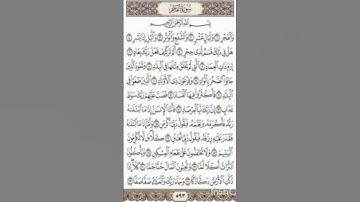 سُورَةُ الفَجْرِ
بِسْمِ اللَّهِ الرَّحْمَٰنِ الرَّحِيمِ
وَالْفَجْرِ ١ وَلَيَالٍ عَشْرٍ ٢ وَالشَّفْعِ وَالْوَتْرِ ٣ وَاللَّيْلِ إِذَا يَسْرِ ٤
هَلْ فِي ذَٰلِكَ قَسَمٌ لِّذِي حِجْرٍ ٥ أَلَمْ تَرَ كَيْفَ فَعَلَ رَبُّكَ بِعَادٍ ٦
إِرَمَ ذَاتِ الْعِمَادِ ٧ الَّتِي لَمْ يُخْلَقْ مِثْلُهَا فِي الْبِلَادِ ٨ وَثَمُودَ الَّذِينَ
جَابُوا الصَّخْرَ بِالْوَادِ ٩ وَفِرْعَوْنَ ذِي الْأَوْتَادِ ١٠ الَّذِينَ طَغَوْا
فِي الْبِلَادِ ١١ فَأَكْثَرُوا فِيهَا الْفَسَادَ ١٢ فَصَبَّ عَلَيْهِمْ رَبُّكَ سَوْطَ
عَذَابٍ ١٣ إِنَّ رَبَّكَ لَبِالْمِرْصَادِ ١٤ فَأَمَّا الْإِنسَانُ إِذَا مَا ابْتَلَاهُ
رَبُّهُ فَأَكْرَمَهُ وَنَعَّمَهُ فَيَقُولُ رَبِّي أَكْرَمَنِ ١٥ وَأَمَّا إِذَا مَا ابْتَلَاهُ
فَقَدَرَ عَلَيْهِ رِزْقَهُ فَيَقُولُ رَبِّي أَهَانَنِ ١٦ كَلَّا بَل لَّا تُكْرِمُونَ
الْيَتِيمَ ١٧ وَلَا تَحَاضُّونَ عَلَىٰ طَعَامِ الْمِسْكِينِ ١٨ وَتَأْكُلُونَ
التُّرَاثَ أَكْلًا لَّمًّا ١٩ وَتُحِبُّونَ الْمَالَ حُبًّا جَمًّا ٢٠ كَلَّا إِذَا
دُكَّتِ الْأَرْضُ دَكًّا دَكًّا ٢١ وَجَاءَ رَبُّكَ وَالْمَلَكُ صَفًّا صَفًّا ٢٢
٥٩٣